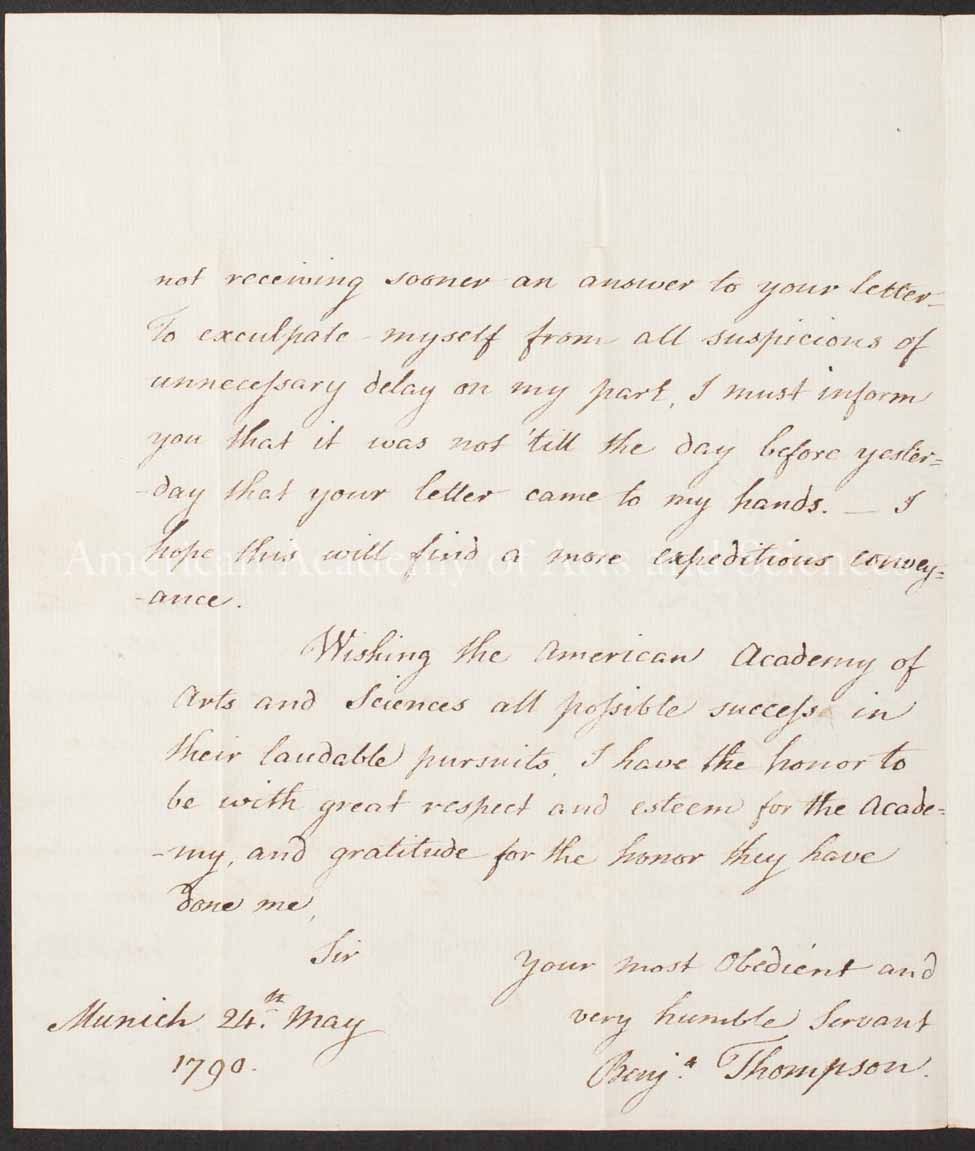 not receiving sooner an answer to your letter—
To exculpate myself from all suspicions of
unnecessary delay on my part, I must inform
you that it was not 'till the day before yester=
-day that your letter came to my hands. — I
hope this will find a more expeditious convey=
American Academy of Arts and Sciences
-ance.
Wishing the American Academy of
Arts and Sciences all possible success in
their laudable pursuits, I have the honor to
be with great respect and esteem for the Acade=
-my, and gratitude for the honor they have
done me,
Sir
Your most Obedient and
very humble Servant
Munich 24.th May
1790.
Benj.n Thompson.